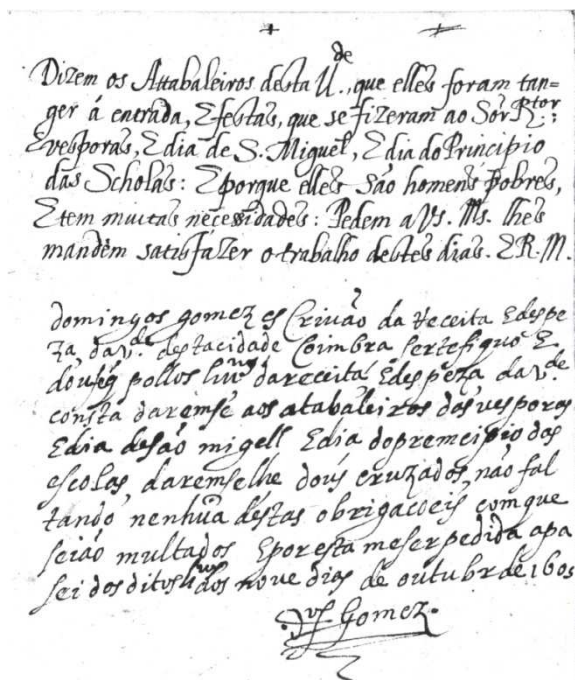 Dizem os Attabaleiros desta U.de, que elles foram tan=
ger á entrada, E festas, que se fizeram ao Sõr R.tor;
E vesporas, E dia de S. Miguel, E dia do Principio
das Scholas: E porque elles são homens pobres,
E tem muitas necessidades: Pedem a Vs. Ms. lhes
mandem satisfazer o trabalho destes dias. E R. M.
domingos gomez es Crivão da Receita E despe
za da v.de desta cidade Coimbra sertefiquo E
dou fé pollos livros da receita E despeza da v.de
consta daremse aos atabaleiros das vesporas
E dia de são migell E dia do premcipio das
escolas daremselhe dous cruzados, não fal
tando nenhũa destas obrigacoeis com que
seião multados E por esta me ser pedida a pa
sei dos ditos livros nove dias de outubr de 1605
Gomez.